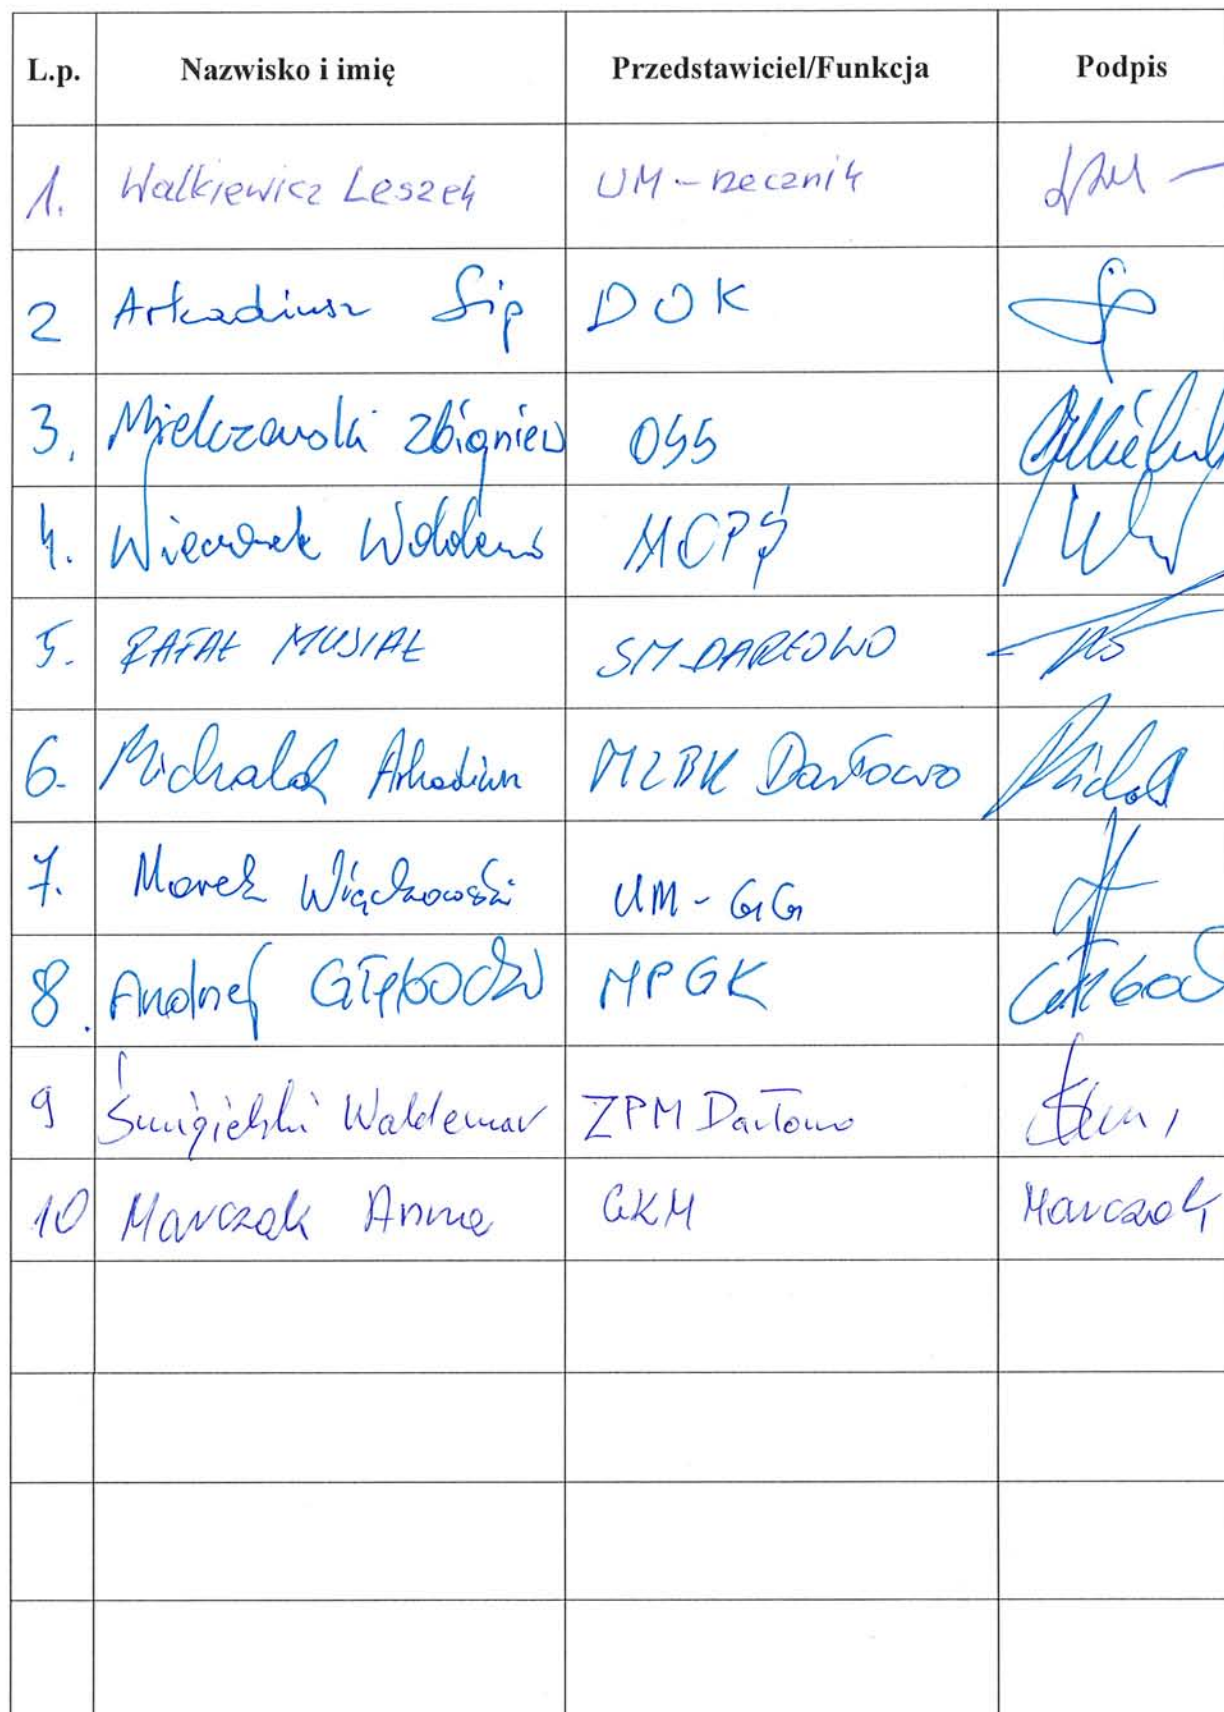 L.p. Nazwisko i imię Przedstawiciel/Funkcja Podpis
1. Walkiewicz Leszek UM - rzecznik
2 Arkadiusz Sip DOK Sip
3. Mielczarski Zbigniew
4. Wieczorek MOPS
5. RAFAŁ MUSIAŁ SM DARŁOWO
6. Michalak Arkadiusz MZBK Darłowo
7. Marek Więckowski UM - GG
8. Andrzej Głębocki MPGK
9 Śmigielski Waldemar ZPM Darłowo
10 Marczak Anna GKM Marczak